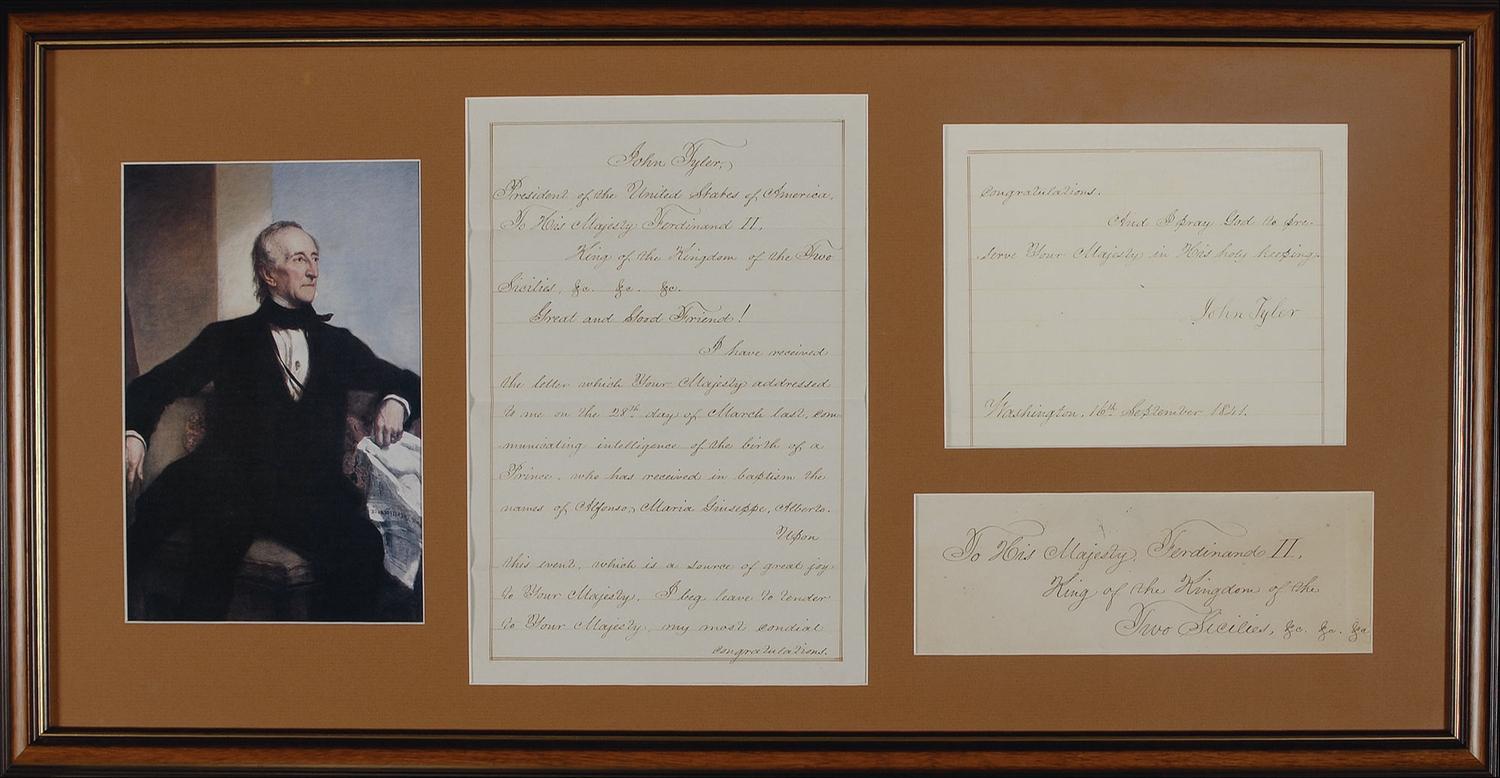 John Tyler,
President of the United States of America,
To His Majesty Ferdinand II,
King of the Kingdom of the Two
Sicilies, &c. &c. &c.
Great and Good Friend!
I have received
the letter which Your Majesty addressed
to me on the 28th day of March last, com-
municating intelligence of the birth of a
Prince, who has received in baptism the
names of Alfonso, Maria Giuseppe, Alberto.
Upon
this event, which is a source of great joy
to Your Majesty, I beg leave to tender
to Your Majesty, my most cordial
congratulations.
congratulations.
And I pray God to pre-
serve Your Majesty in His holy keeping.
John Tyler
Washington, 16th September 1841.
To His Majesty Ferdinand II,
King of the Kingdom of the
Two Sicilies, &c. &c. &c